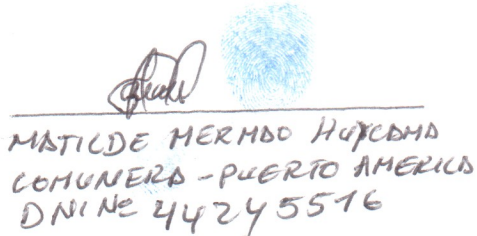 MATILDE MERMAO HUYCAMA
COMUNERA - PUERTO AMERICA
DNI Nº 44245516